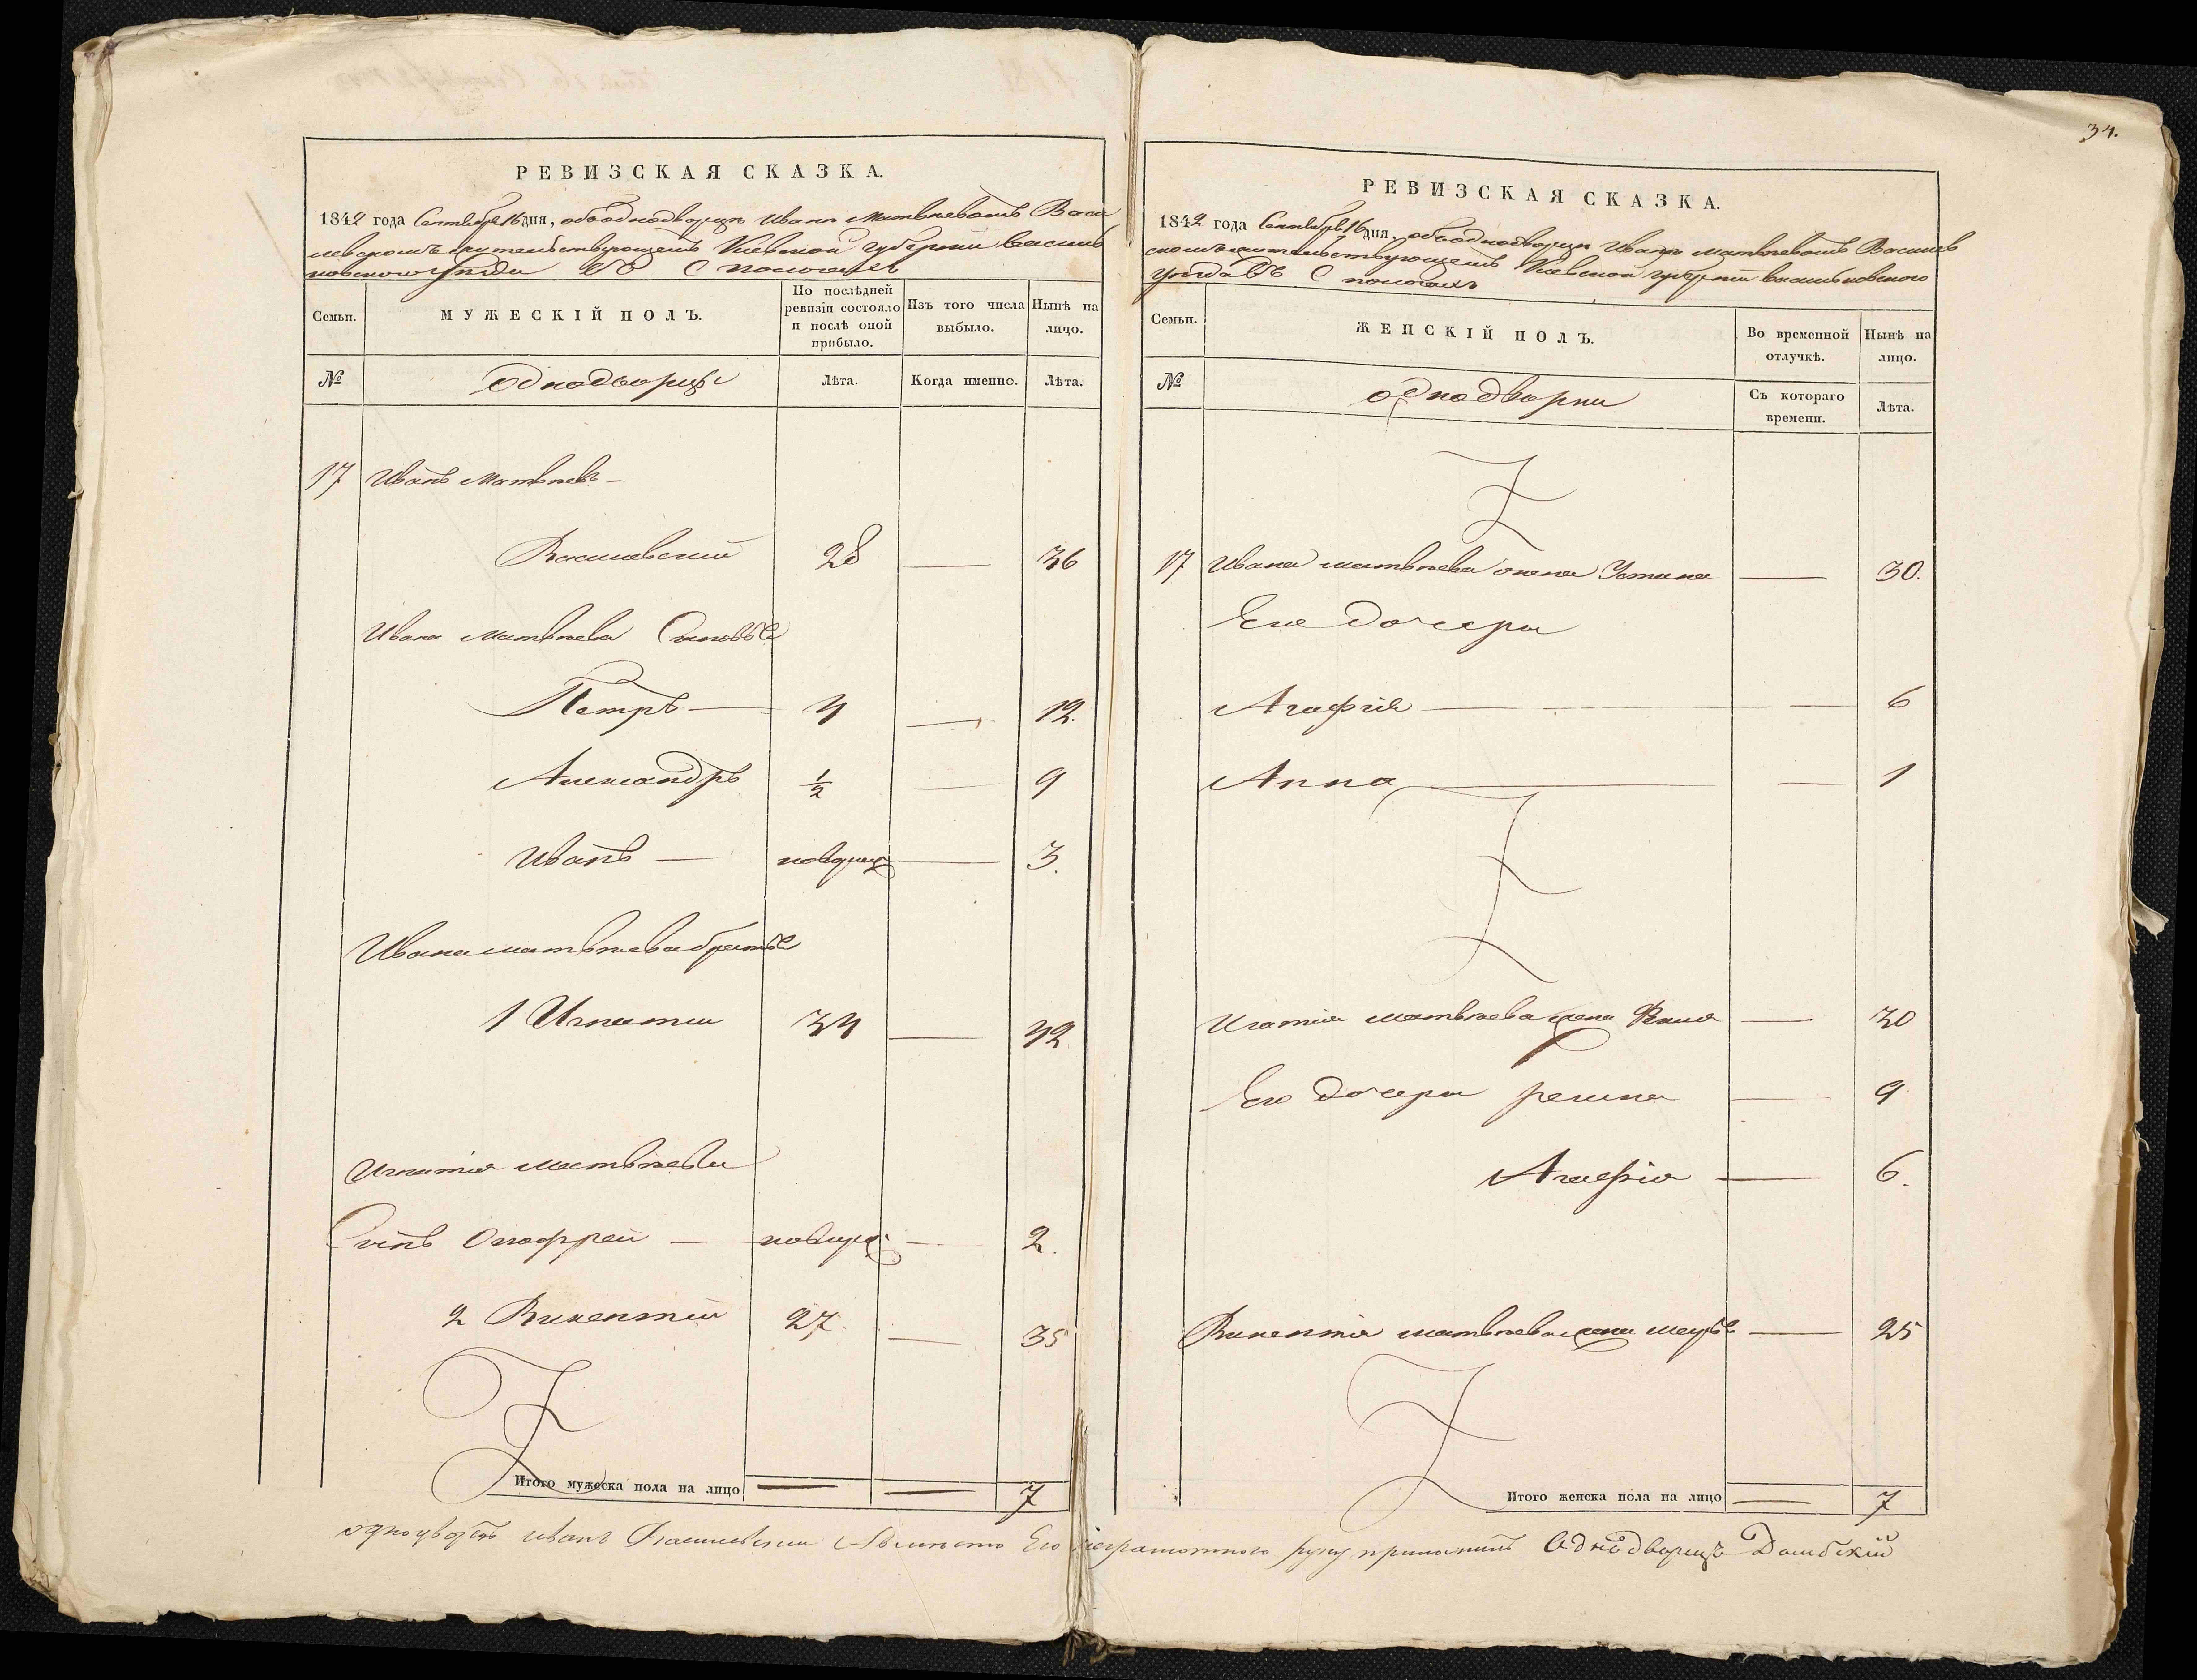 34.
РЕВИЗСКАЯ СКАЗКА.
1842 года Сентября 16 дня, объ однодворцѣ Иванѣ Матвѣевомъ Васи
левскомъ жительствующемъ Киевской губернии Василь
ковского уезда въ С
Семьи.
МУЖЕСКІЙ ПОЛЪ.
По послѣдней ревизіи состояло и послѣ оной прибыло.
Изъ того числа выбыло.
Нынѣ на лицо.
№
однодворцы
Лѣта.
Когда именно.
Лѣта.
17 Иванъ Матвѣевъ
Василевский 28 — 36
Ивана Матвѣева Сыновья
Петръ — 4 — 12.
Александръ 1/2 — 9
Иванъ — новорож — 3.
Ивана матвѣева братья
1 Игнатии 34 — 42
Игнатия Матвѣева
Сынъ Оноффреи — новорож — 2.
2 Викентий 27 — 35
Итого мужеска пола на лицо — — 7
РЕВИЗСКАЯ СКАЗКА.
1842 года Сентября 16 дня, объ однодворцѣ Иванѣ матвѣевомъ Василев
скомъ жительствующемъ Киевской губернии васильковского
уезда въ С
Семьи.
ЖЕНСКІЙ ПОЛЪ.
Во временной отлучкѣ.
Нынѣ на лицо.
№
однодворки
Съ котораго времени.
Лѣта.
17 Ивана матвѣева жена Устина — 30.
Его дочери
Агафия — — 6
Анна — — 1
Игнатия матвѣева жена — 30
Его дочери регина — 9
Агафия — 6.
Викентия матвѣева жена — 25
Итого женска пола на лицо — 7
однодворецъ иванъ Василевскии Авместо Его неграмотного руку приложилъ Однодворецъ Домбскій